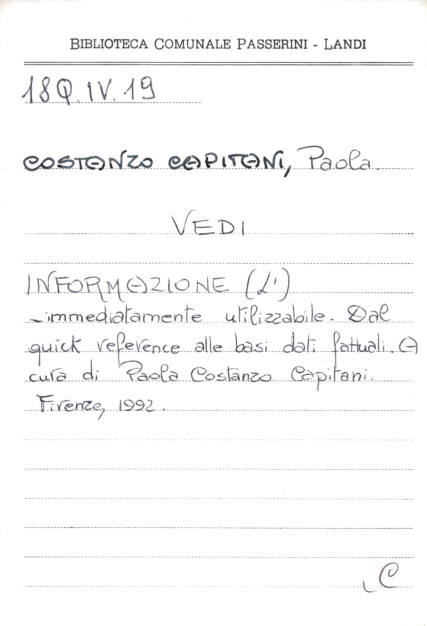 BIBLIOTECA COMUNALE PASSERINI - LANDI
18Q.IV.19
COSTANZO CAPITANI, Paola.
VEDI
INFORMAZIONE (L')
-immediatamente utilizzabile. Dal
quick reference alle basi dati fattuali. A
cura di Paola Costanzo Capitani.
Firenze, 1992.